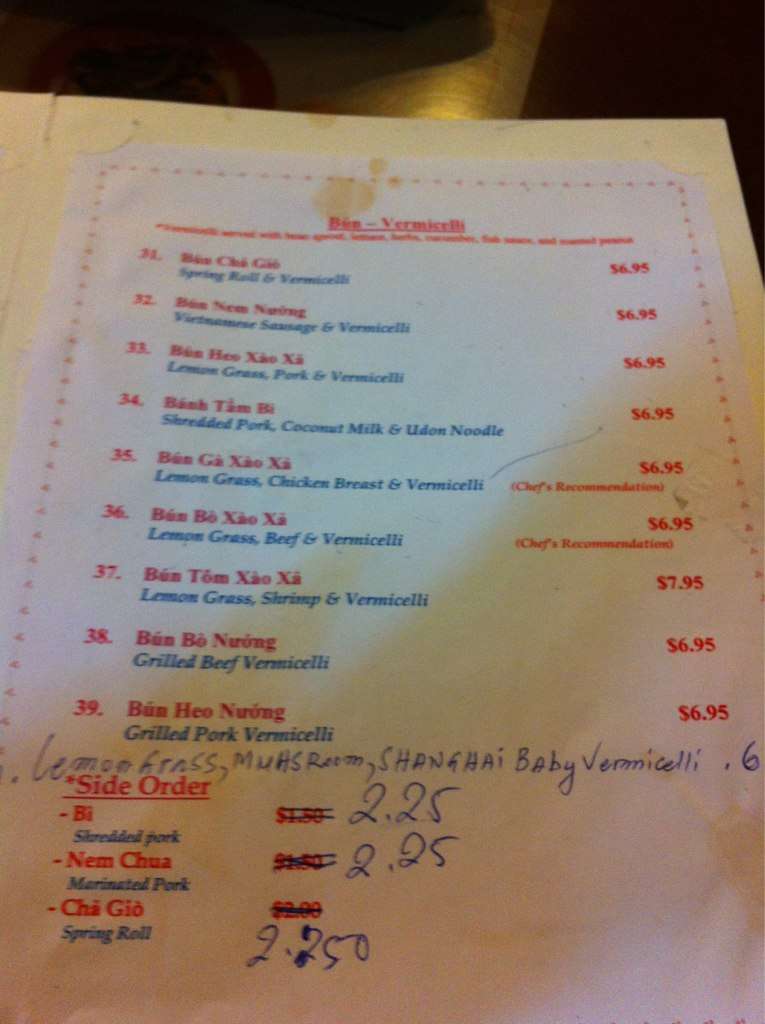 Bún – Vermicelli
*Vermicelli served with bean sprout, lettuce, herbs, cucumber, fish sauce, and roasted peanut
31. Bún Chả Giò $6.95
Spring Roll & Vermicelli
32. Bún Nem Nướng $6.95
Vietnamese Sausage & Vermicelli
33. Bún Heo Xào Xả $6.95
Lemon Grass, Pork & Vermicelli
34. Bánh Tầm Bì $6.95
Shredded Pork, Coconut Milk & Udon Noodle
35. Bún Gà Xào Xả $6.95
Lemon Grass, Chicken Breast & Vermicelli (Chef's Recommendation)
36. Bún Bò Xào Xả $6.95
Lemon Grass, Beef & Vermicelli (Chef's Recommendation)
37. Bún Tôm Xào Xả $7.95
Lemon Grass, Shrimp & Vermicelli
38. Bún Bò Nướng $6.95
Grilled Beef Vermicelli
39. Bún Heo Nướng $6.95
Grilled Pork Vermicelli
. Lemon Grass, MUHSRoom, SHANGHAi BAby Vermicelli . 6
*Side Order
- Bì $1.50 2.25
Shredded pork
- Nem Chua $1.50 2.25
Marinated Pork
- Chả Giò $2.00
Spring Roll 2.250